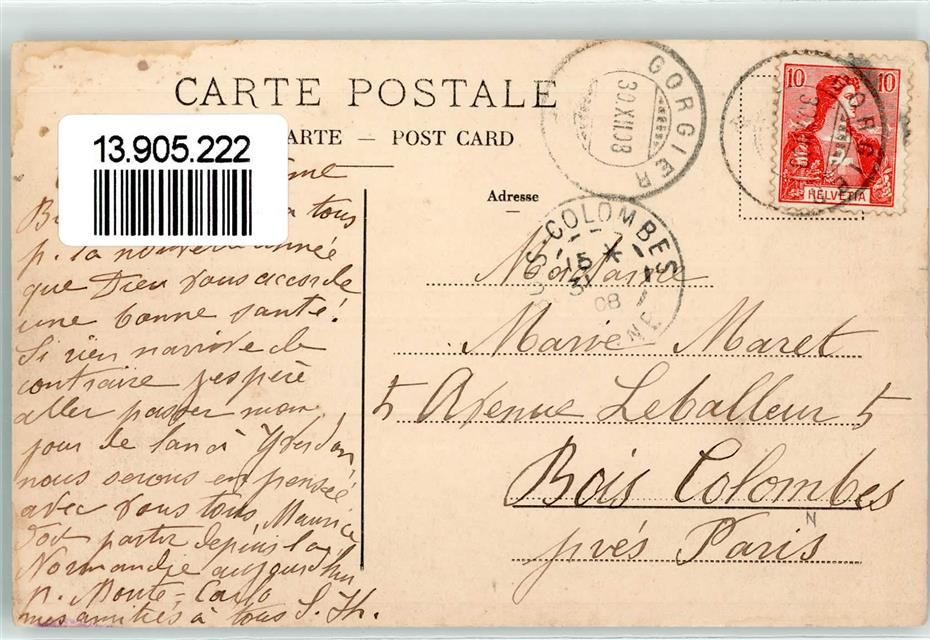 CARTE POSTALE
ARTE — POST CARD
13.905.222
Adresse
GORGIER
30.XII.08
10 10
HELVETIA
COLOMBES
15 *
31
08
tous
p. la nouvelle année
que Dieu vous accorde
une bonne santé!
Si rien n'arrive de
contraire j'espère
aller passer mon
jour de l'an à Yverdon,
nous serons en pensée
avec vous tous, Maurice
doit partir depuis la
Normandie aujourd'hui
p. Monte-Carlo
mes amitiés à tous S. Th.
Madame
Marie Maret
5 Avenue Leballeur 5
Bois Colombes
N
près Paris